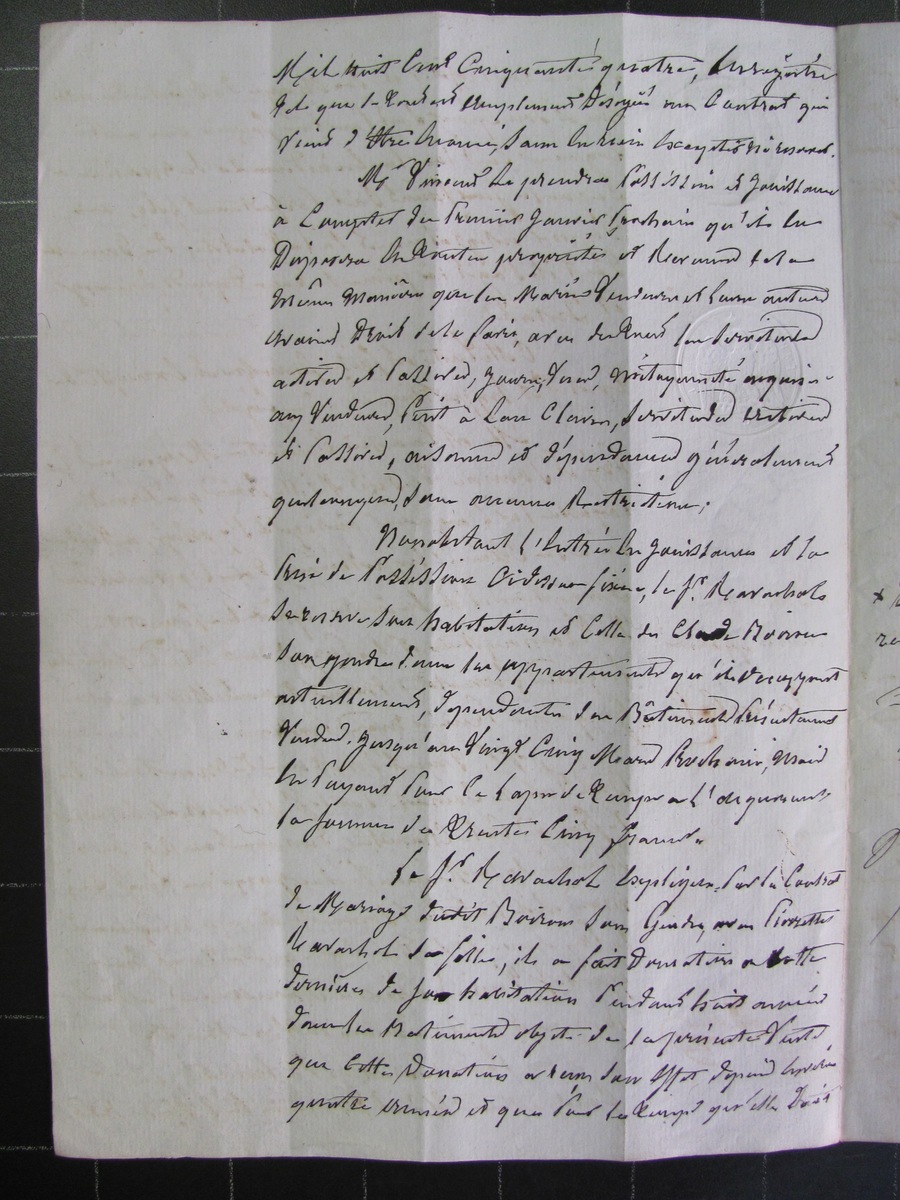 Mil huit Cent Cinquante quatre, Enregistré
tel que le Contrat
vient d'être énoncé, sans en rien excepter ni réserver.
Mr Vincent prendra Possession et Jouissance
à Compter du Premier Janvier Prochain qu'il en
Disposera En Toute propriété et Revenu de la
même manière que les Mariés Vendeurs et leurs auteurs
avaient Droit de le faire, avec les Servitudes
actives et Passives, Jours, Vues, Mitoyenneté
aux Vendeurs, Servitudes actives
et Passives, aisances et dépendances généralement
quelconques, sans aucune Restriction.
Nonobstant l'Entrée En Jouissance et la
Prise de Possession Ci dessus fixée, le Sr. Ravachol
se réserve son habitation et Celle de Claude Boiron
son gendre dans les appartements qu'ils occupent
actuellement, dépendants des Bâtiments Présentement
Vendus, jusqu'au Vingt Cinq Mars Prochain, Mais
En Payant Pour Ce Laps de Temps à l'acquéreur
la Somme de Trente Cinq francs.
Le Sr. Ravachol Explique que Par le Contrat
de Mariage dudit Boiron Son Gendre, avec Pierrette
Ravachol Sa fille, il a fait Donation a Cette
dernière de Son habitation Pendant huit années
dans les Bâtiments objets de la présente Vente
que Cette Donation a reçu Son Effet depuis Environ
quatre années et que Pour le Temps qu'elle Doit